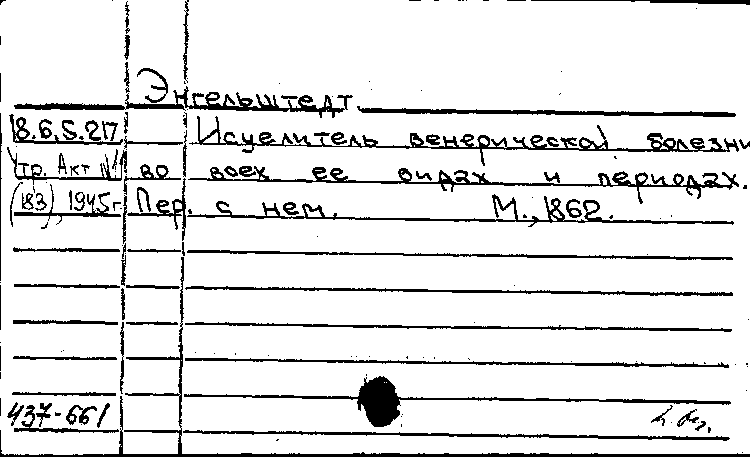 Энгельштедт.
18.6.5.217 Исцелитель венерической болезни
Утр. Акт №1 во всех ее видах и периодах.
(183), 1945г Пер. с нем. М., 1862.
437-661